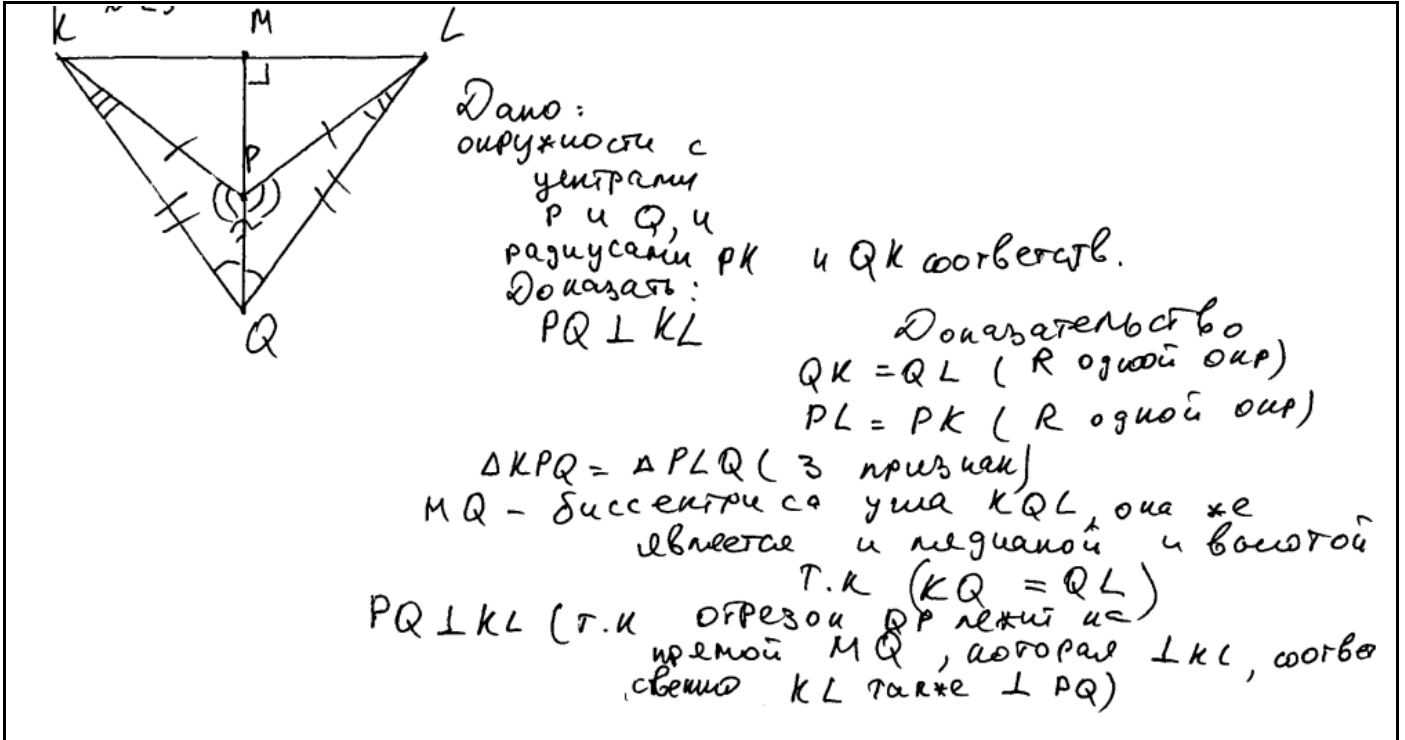 K M L
P
Q
Дано:
окружности с
центрами
P и Q, и
радиусами PK и QK соответств.
Доказать:
PQ ⊥ KL
Доказательство
QK = QL ( R одной окр)
PL = PK ( R одной окр)
∆KPQ = ∆PLQ ( 3 признак)
MQ - биссектриса угла KQL, она же
является и медианой и высотой
т.к (KQ = QL)
PQ ⊥ KL (т.к отрезок QP лежит на
прямой MQ, которая ⊥ KL, соотве
свенно KL также ⊥ PQ)